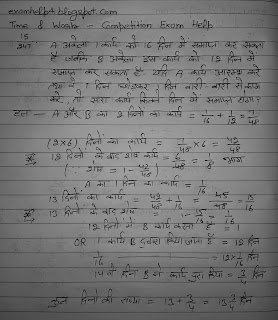 examhelpht.blogspot.com
Time & Work - Competition Exam Help
15
A अकेला 1 कार्य को 16 दिन में समाप्त कर सकता
है जबकि B अकेला उस कार्य को 12 दिन में
समाप्त कर सकता है यदि A कार्य आरम्भ करे
तथा वे 1 दिन छोड़कर 1 दिन बारी बारी से काम
करे, तो सारा कार्य कितने दिन में समाप्त होगा?
हल- A और B का 2 दिनों का कार्य = 1/16 + 1/12 = 7/48
(2×6) दिनों का कार्य = 7/48 × 6 = 42/48
12 दिनों के बाद शेष कार्य = 6/48 = 1/8 भाग
(∵ शेष = 1 - 42/48)
A का 1 दिन का कार्य = 1/16
13 दिनों का कार्य = 42/48 + 1/16 = 45/48 = 15/16
13 दिनों के बाद शेष = 1 - 15/16 = 1/16
12 दिनों में B कार्य करता है = 1
OR 1 कार्य B द्वारा किया जाता है = 12 दिन
1/16 = 12 × 1/16 दिन
14 वें दिन B से कार्य पूरा किया = 3/4 दिन
कुल दिनों की संख्या = 13 + 3/4 = 13 3/4 दिन